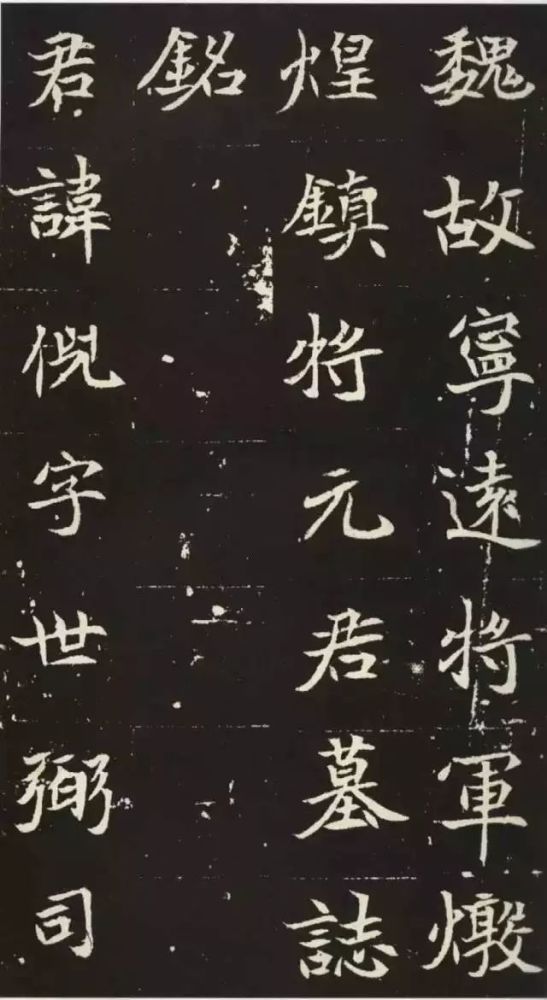 魏故寧遠將軍燉
煌鎮將元君墓誌
銘
君諱倪字世弼司